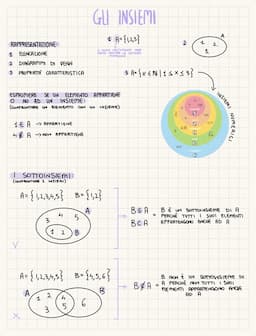 GLI INSIEMI
RAPPRESENTAZIONE
1 ELENCAZIONE
2 DIAGRAMMI DI VENN
3 PROPRIETÀ CARATTERISTICA
1 A={1,2,3}
2
A
1 2
3
3 A={x∈N | 1≤x≤3}
INSIEMI NUMERICI
ESPRIMERE SE UN ELEMENTO APPARTIENE
O NO AD UN INSIEME
(CONFRONTARE UN ELEMENTO CON UN INSIEME)
1∈A → APPARTIENE
4∉A → NON APPARTIENE
I SOTTOINSIEMI
(CONFRONTARE 2 INSIEMI)
A={1,2,3,4,5} B={1,2}
A
3 4 5
1 2 B
V
B⊆A
B⊂A
= B È UN SOTTOINSIEME DI A
PERCHÉ TUTTI I SUOI ELEMENTI
APPARTENGONO ANCHE AD A
A={1,2,3,4,5} B={4,5,6}
A B
1 2 4 6
3 5
X
B⊄A = B NON È UN SOTTOINSIEME DI
A PERCHÉ NON TUTTI I SUOI
ELEMENTI APPARTENGONO ANCHE
AD A